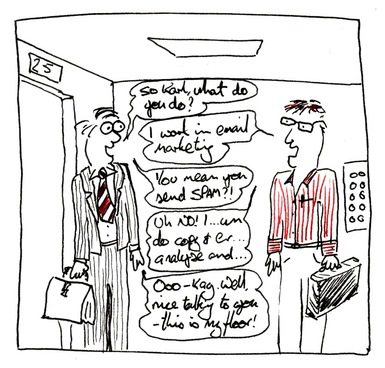 25
So Karl, what do
you do?
I work in email
marketing
You mean you
send SPAM?!
Uh NO! I...um
do copy & er...
analyse and...
Ooo-kay. Well,
nice talking to you
-this is my floor!